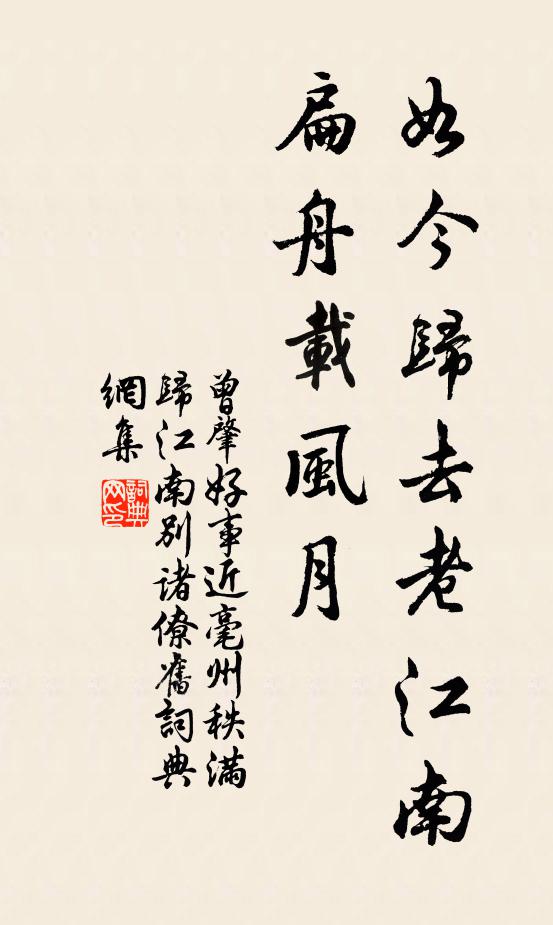 如今歸去老江南
扁舟載風月
曾肇好事近亳州秩滿
歸江南別諸僚舊詞典
網集
詞典
网印